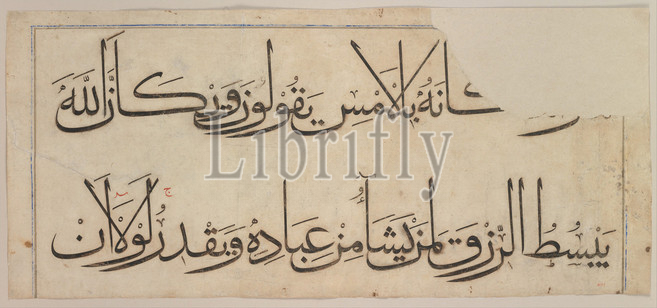 كَانَهُ بِالْاَمْسِ يَقُولُونَ وَيْكَاَنَّ اللَّهَ
Librifly
يَبْسُطُ الرِّزْقَ لِمَنْ يَشَآءُ مِنْ عِبَادِهِ وَيَقْدِرُ لَوْلَا اَنْ